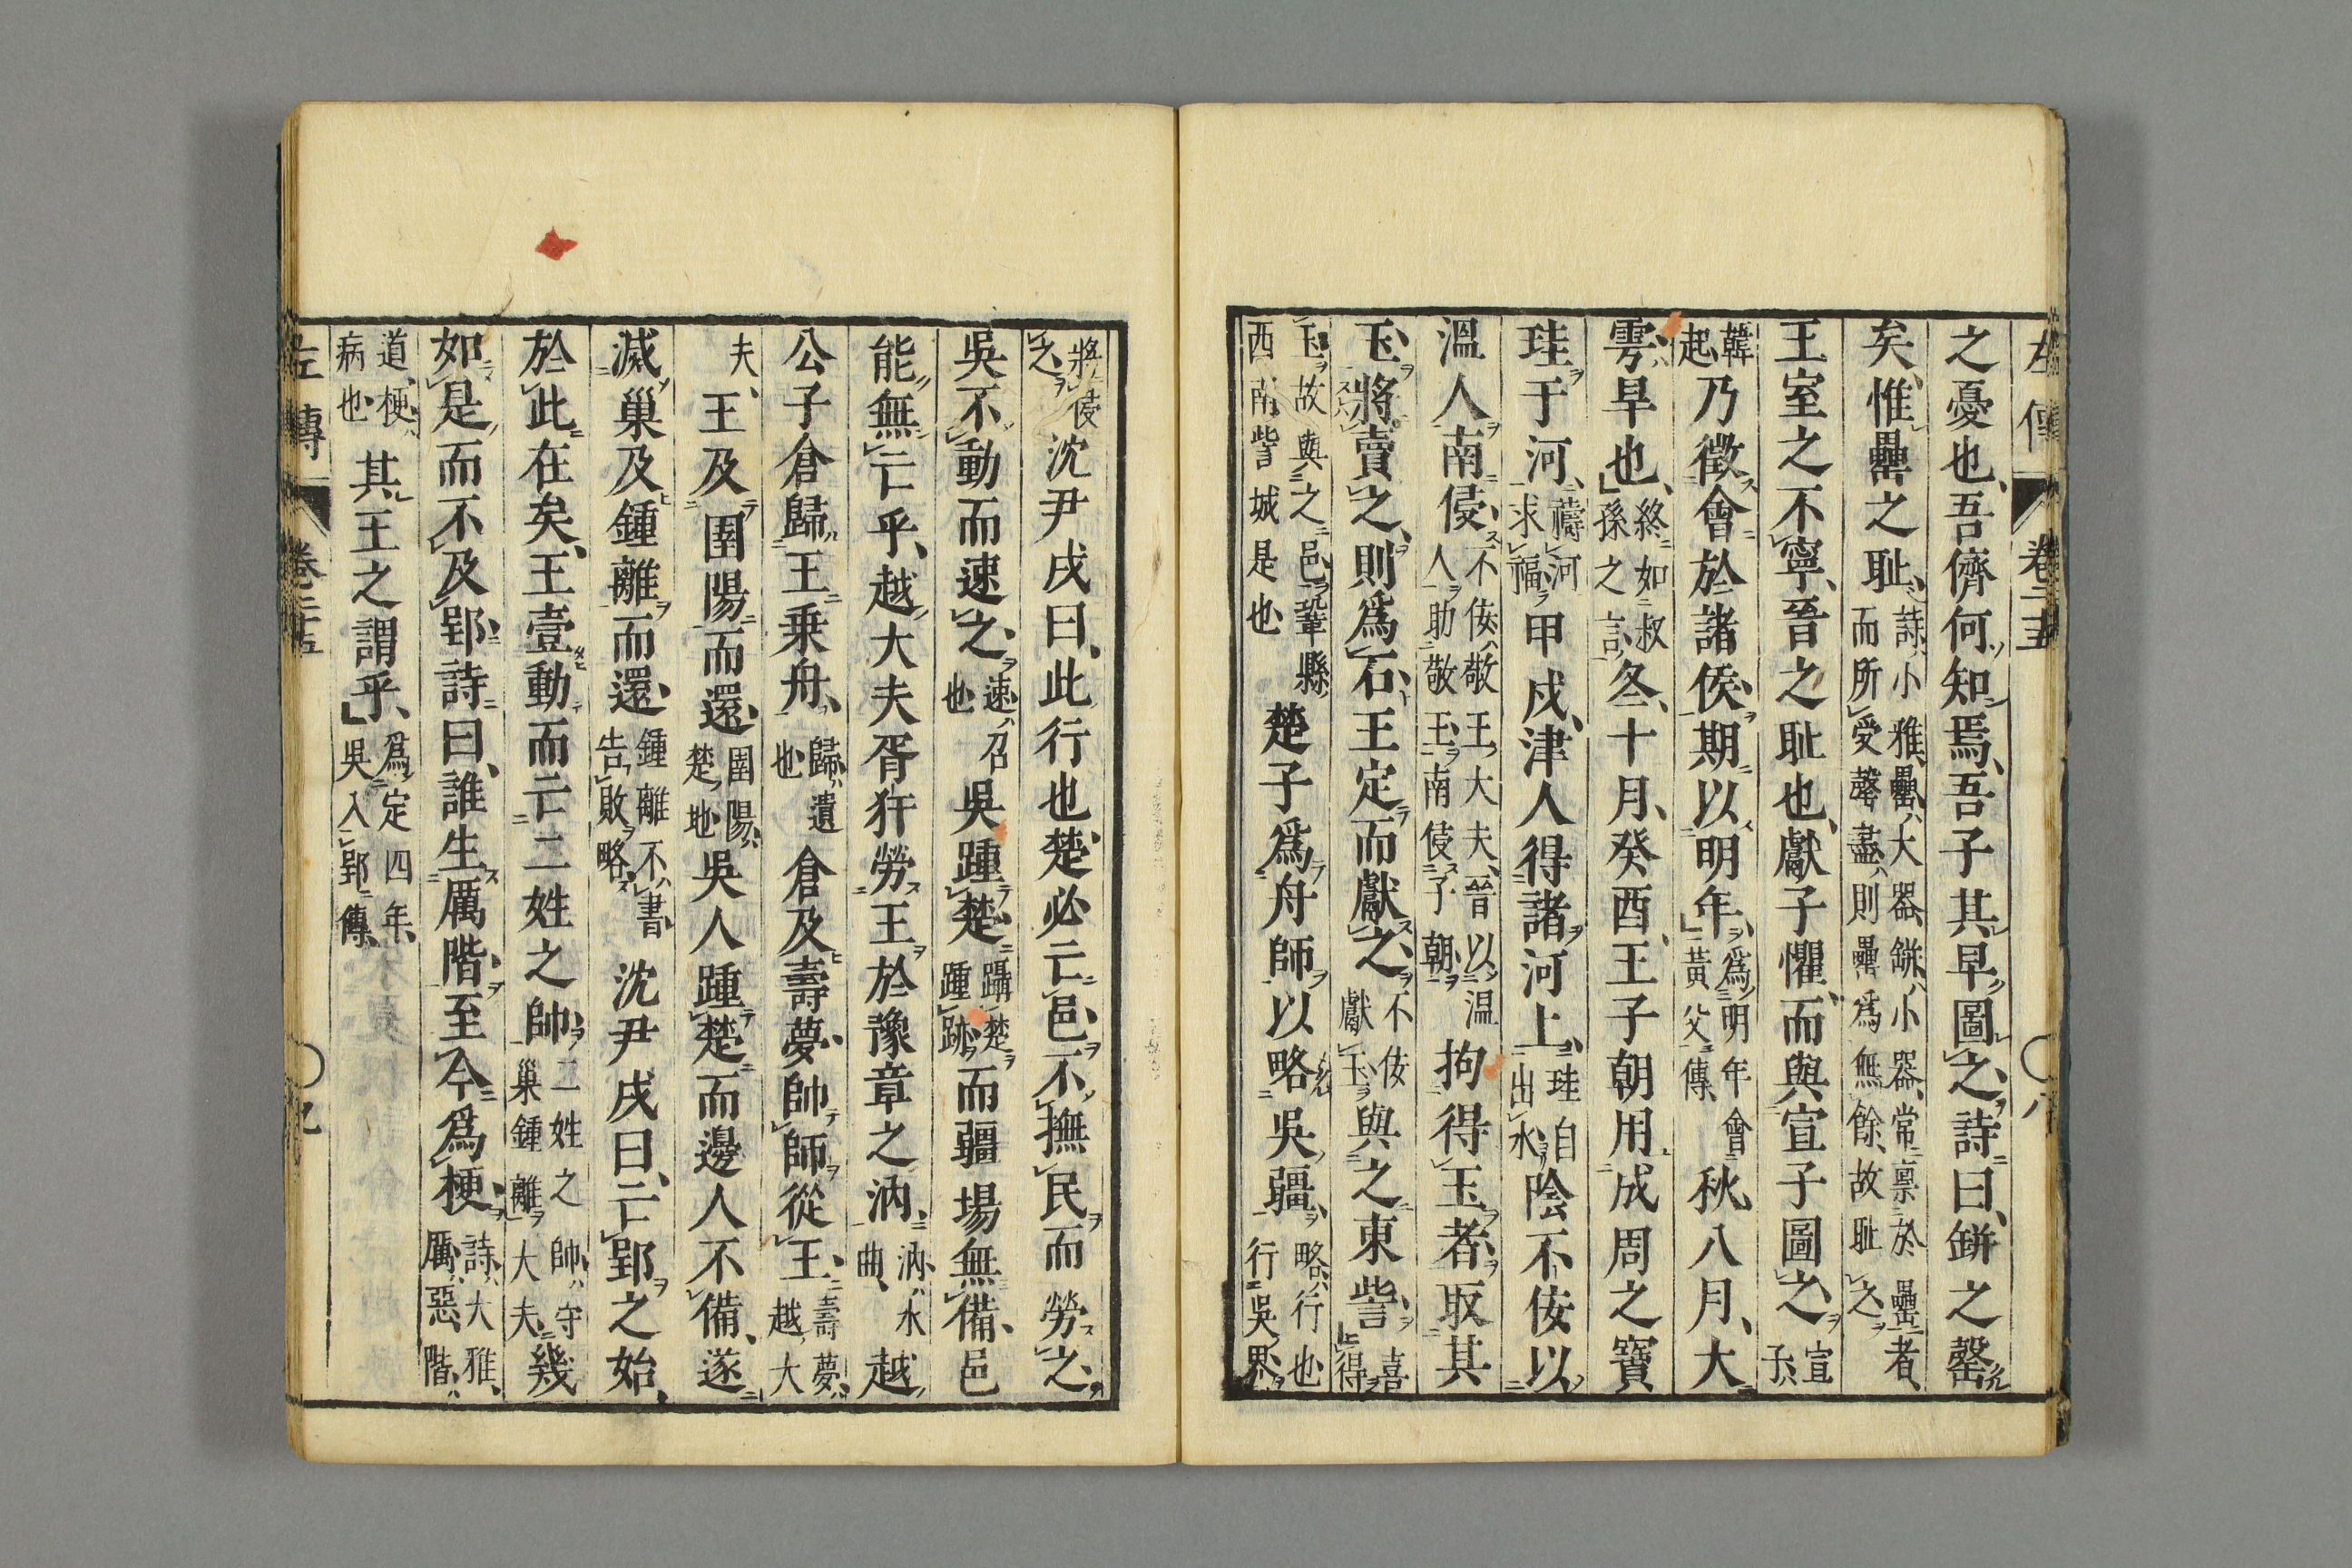 左傳 卷二十五 〇八
之憂也、吾儕何知焉、吾子其早圖之、詩曰、缾之罄
矣、惟罍之耻、詩、小雅、罍、大器、缾、小器、常禀於罍者、而所受罄盡、則罍爲無餘、故耻之、
王室之不寧、晉之耻也、獻子懼、而與宣子圖之、宣子、
韓起、乃徵會於諸侯、期以明年、爲明年會黃父傳、秋、八月、大
雩、旱也、終如叔孫之言、冬、十月、癸酉、王子朝用成周之寶
珪于河、禱河求福、甲戌、津人得諸河上、珪自出水、陰不佞以
溫人南侵、不佞、敬王大夫、晉以溫人助敬王、南侵子朝、拘得玉者、取其
玉、將賣之、則爲石、王定而獻之、不佞獻玉、與之東訾、喜得
玉、故與之邑、鞏縣西南訾城是也、楚子爲舟師以略吳疆、略、行也、行吳界、
將侵之、沈尹戌曰、此行也、楚必亡邑、不撫民而勞之、
吳不動而速之、速、召也、吳踵楚、躡楚踵跡、而疆埸無備、邑
能無亡乎、越大夫胥犴勞王於豫章之汭、汭、水曲、越
公子倉歸王乗舟、歸、遺也、倉及壽夢帥師從王、壽夢、越大
夫、王及圉陽而還、圉陽、楚地、吳人踵楚、而邊人不備、遂
滅巢及鍾離而還、鍾離不書、告敗略、沈尹戌曰、亡郢之始、
於此在矣、王壹動而亡二姓之帥、二姓之帥、守巢鍾離大夫、幾
如是而不及郢、詩曰、誰生厲階、至今爲梗、詩、大雅、厲、惡、階、
道、梗、病也、其王之謂乎、爲定四年、吳入郢傳、
左傳 卷二十五 〇九